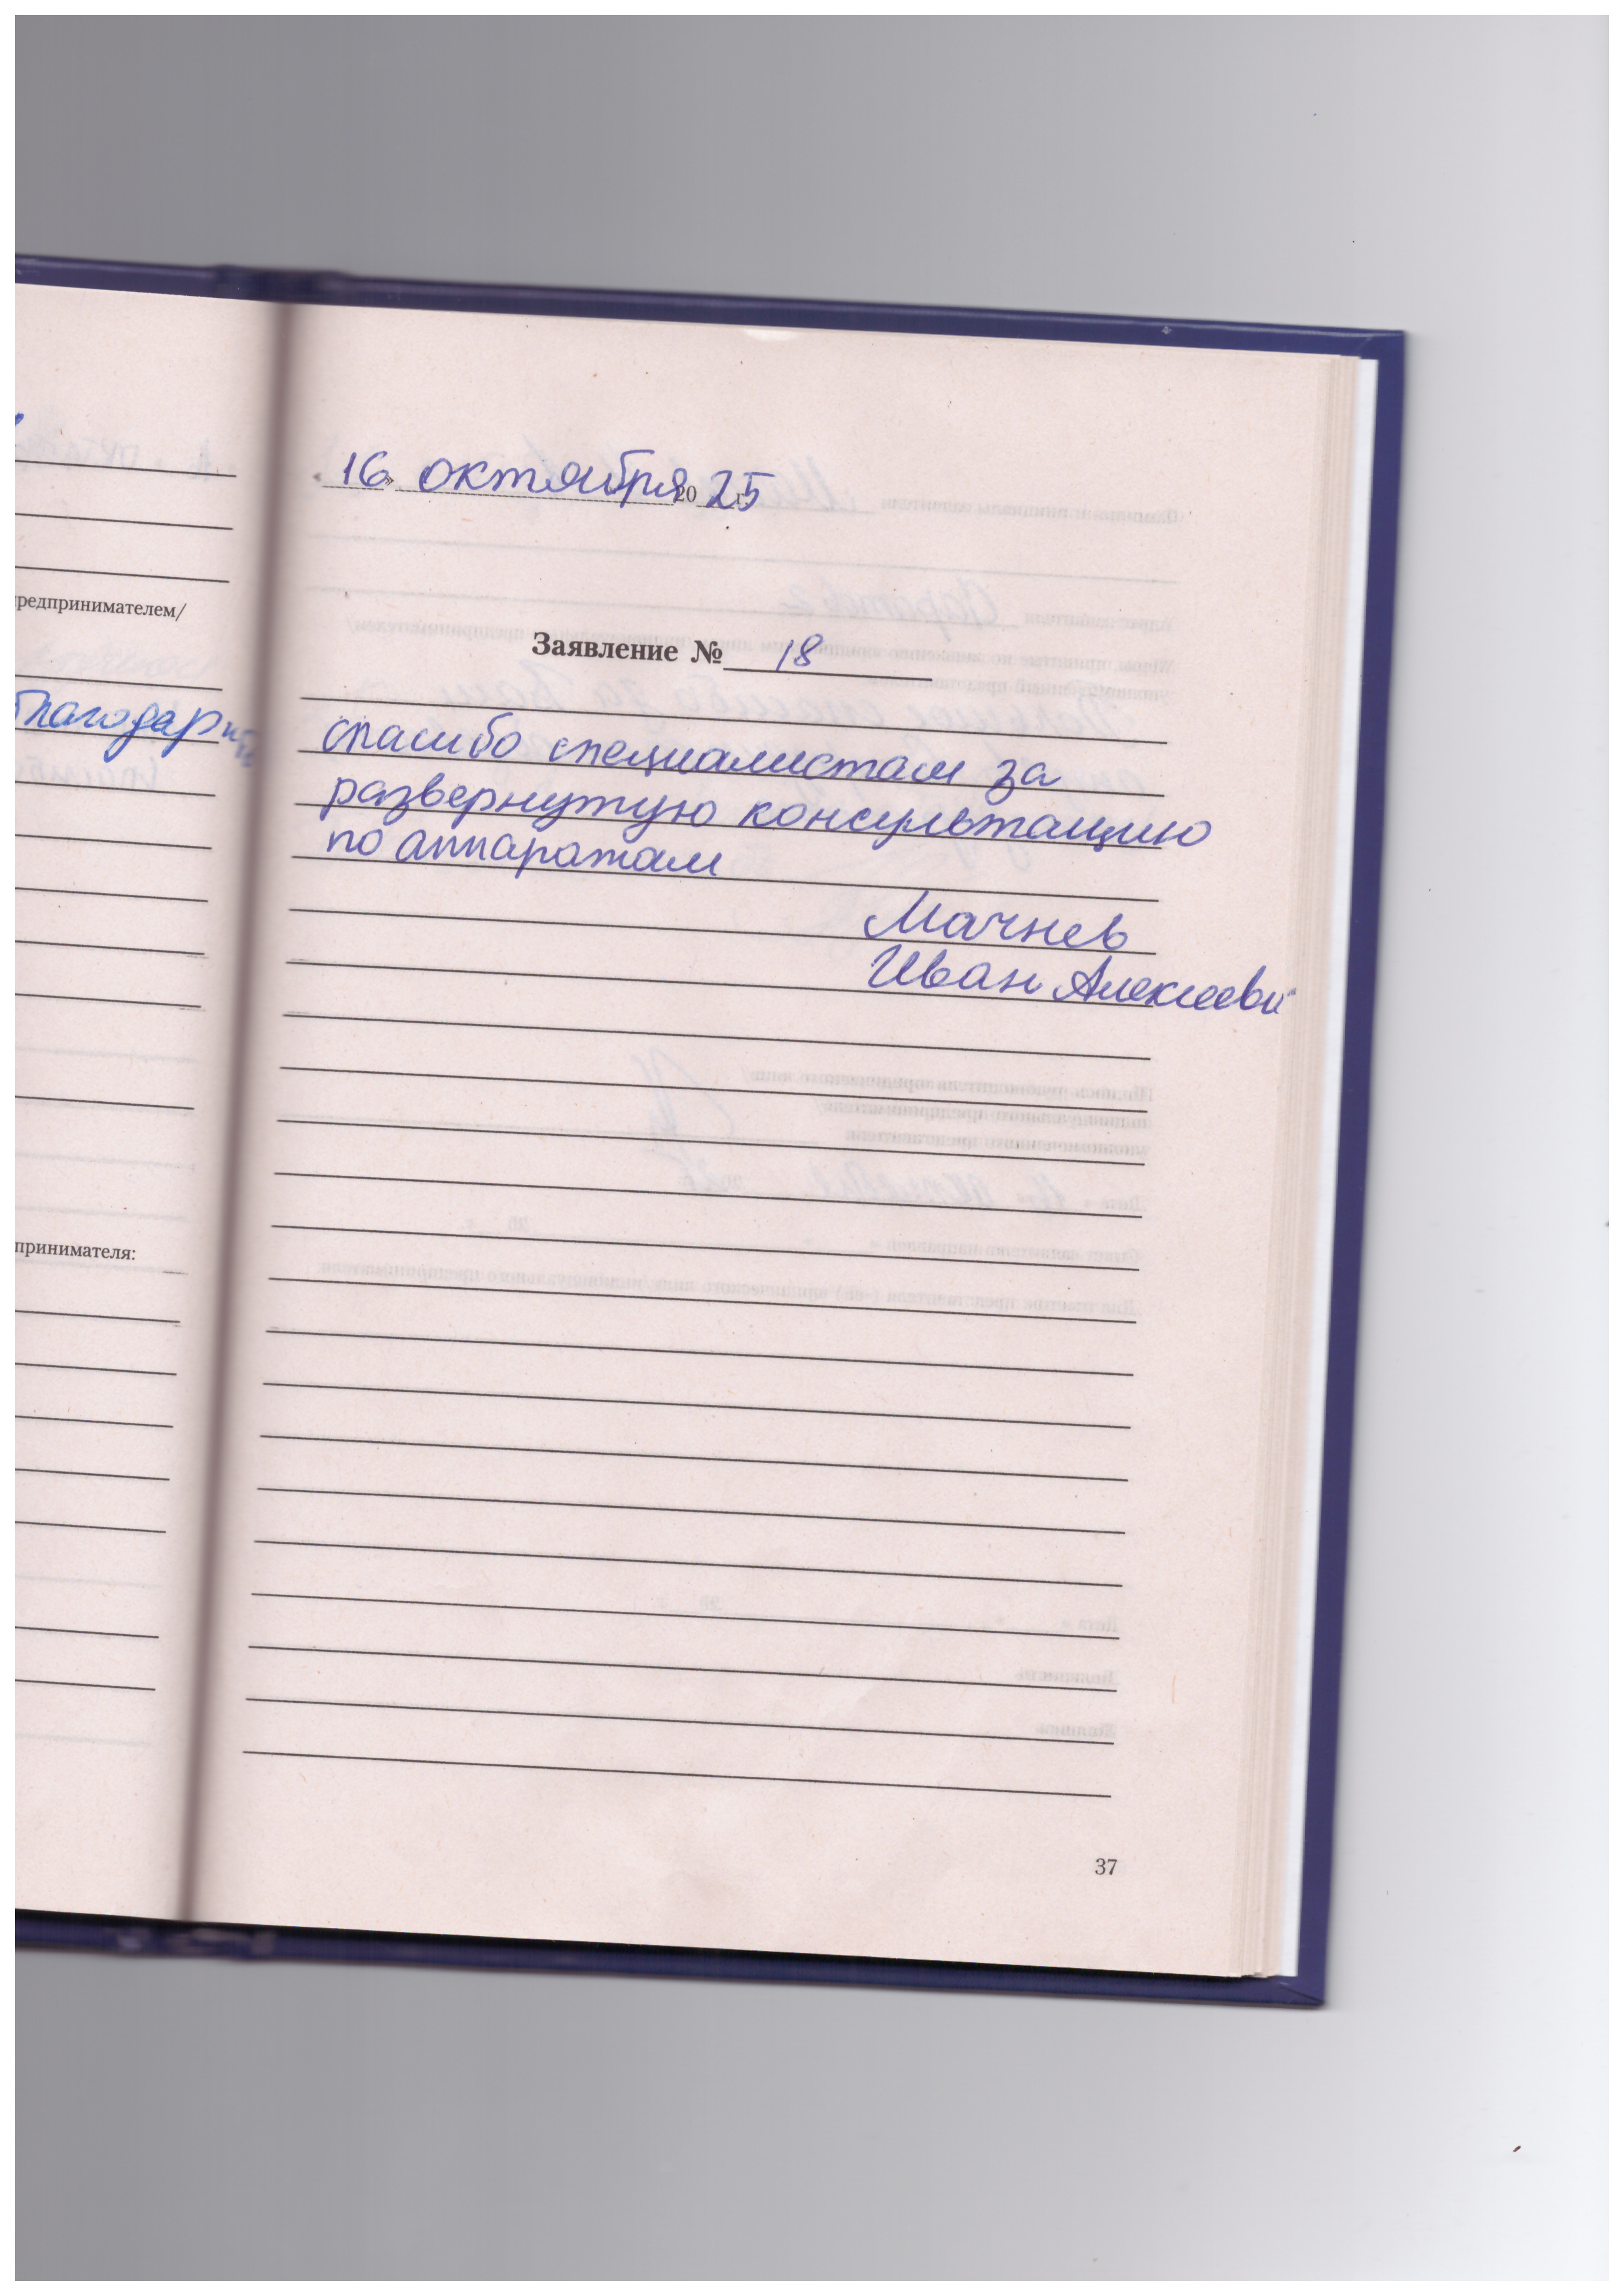 редпринимателем/
благодарить
принимателя:
16» октября 2025 г.
Заявление № 18
спасибо специалистам за
развернутую консультацию
по аппаратам
Мачнев
Иван Алексееви
37